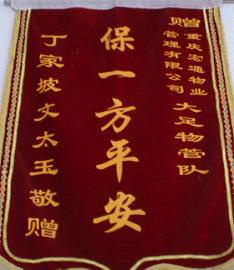 赠重庆宏通物业
管理有限公司大足物管队
保一方平安
丁家坡文太玉敬赠